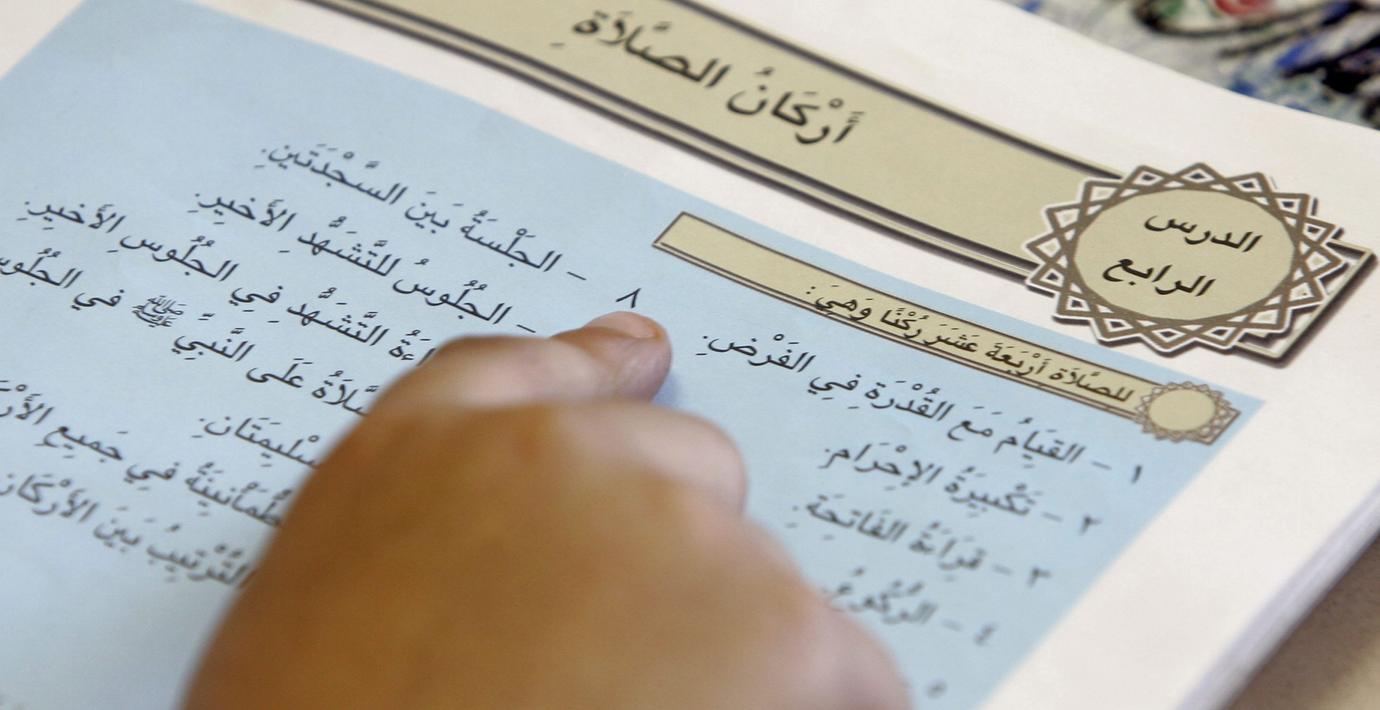 أَرْكَانُ الصَّلاَةِ
الدرس
الرابع
للصَّلاَةِ أَرْبَعَةَ عَشَرَ رُكْنًا وَهِيَ:
١ - القِيَامُ مَعَ القُدْرَةِ فِي الفَرْضِ.
٢ - تَكْبِيرَةُ الإِحْرَامِ.
٣ - قِرَاءَةُ الفَاتِحَةِ.
٤ - الرُّكُوعُ
٥
٨
- الجَلْسَةُ بَيْنَ السَّجْدَتَيْنِ.
- الجُلُوسُ للتَّشَهُّدِ الأَخِيرِ.
التَّشَهُّدِ فِي الجُلُوسِ الأَخِيرِ.
عَلَى النَّبِيِّ ﷺ فِي
فِي جَمِيعِ
التَّرْتِيبُ بَيْنَ الأَرْكَانِ